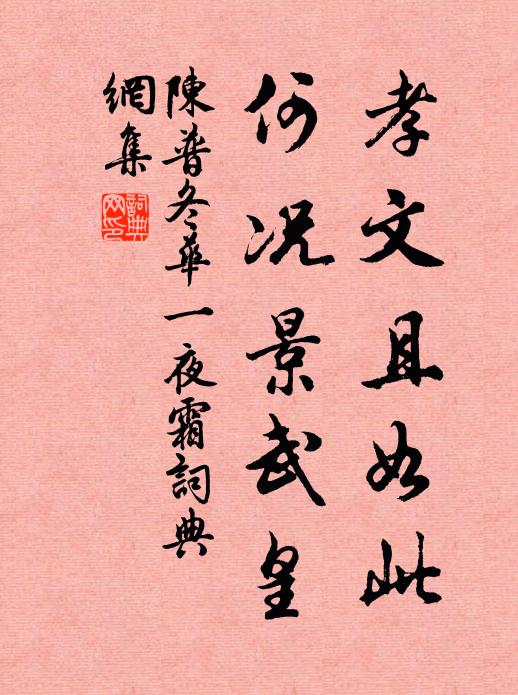 孝文且如此
何况景武皇
陳普冬華一夜霜詞典
網集
詞典
网印